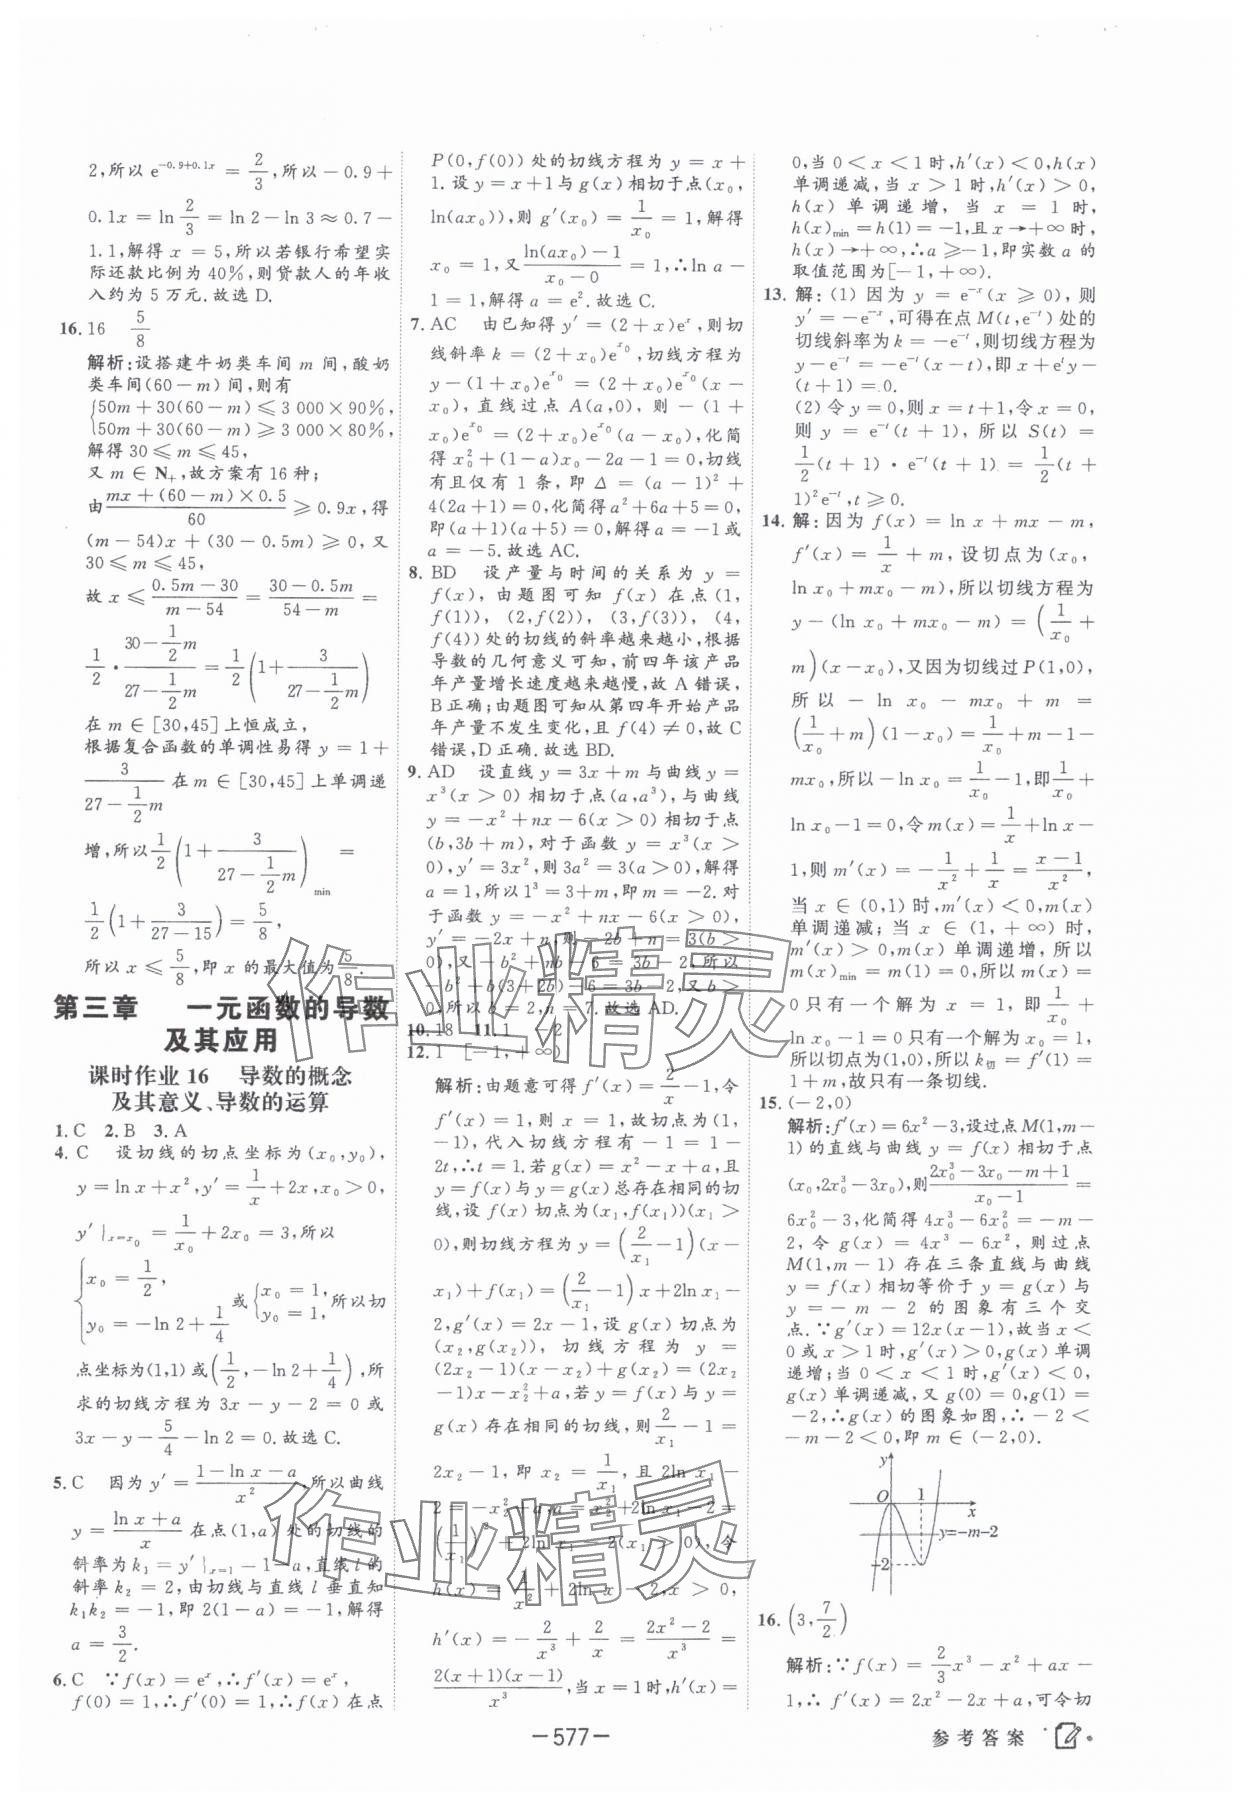 2,所以 e^{-0.9+0.1x} = 2/3,所以 -0.9+
0.1x = ln 2/3 = ln 2 - ln 3 ≈ 0.7 -
1.1,解得 x = 5,所以若银行希望实
际还款比例为 40%,则贷款人的年收
入约为 5 万元.故选 D.
16. 16 5/8
解析:设搭建牛奶类车间 m 间,酸奶
类车间(60-m)间,则有
{50m+30(60-m)≤3 000×90%,
50m+30(60-m)≥3 000×80%,
解得 30≤m≤45,
又 m∈N₊,故方案有 16 种;
由 (mx+(60-m)×0.5)/60 ≥0.9x,得
(m-54)x+(30-0.5m)≥0,又
30≤m≤45,
故 x≤(0.5m-30)/(m-54)=(30-0.5m)/(54-m)=
1/2·(30-1/2 m)/(27-1/2 m)=1/2(1+3/(27-1/2 m))
在 m∈[30,45]上恒成立,
根据复合函数的单调性易得 y=1+
3/(27-1/2 m) 在 m∈[30,45]上单调递
增,所以 1/2(1+3/(27-1/2 m))min =
1/2(1+3/(27-15))=5/8,
所以 x≤5/8,即 x 的最大值为 5/8.
第三章 一元函数的导数
及其应用
课时作业 16 导数的概念
及其意义、导数的运算
1. C 2. B 3. A
4. C 设切线的切点坐标为(x₀,y₀),
y=ln x+x²,y'=1/x+2x,x₀>0,
y'|x=x₀=1/x₀+2x₀=3,所以
{x₀=1/2, y₀=-ln 2+1/4 或{x₀=1, y₀=1, 所以切
点坐标为(1,1)或(1/2,-ln 2+1/4),所
求的切线方程为 3x-y-2=0 或
3x-y-5/4-ln 2=0.故选 C.
5. C 因为 y'=(1-ln x-a)/x²,所以曲线
y=(ln x+a)/x 在点(1,a)处的切线的
斜率为 k₁=y'|x=1=1-a,直线 l 的
斜率 k₂=2,由切线与直线 l 垂直知
k₁k₂=-1,即 2(1-a)=-1,解得
a=3/2.
6. C ∵f(x)=eˣ,∴f'(x)=eˣ,
f(0)=1,∴f'(0)=1,∴f(x)在点
P(0,f(0))处的切线方程为 y=x+
1.设 y=x+1与 g(x)相切于点(x₀,
ln(ax₀)),则 g'(x₀)=1/x₀=1,解得
x₀=1,又(ln(ax₀)-1)/(x₀-0)=1,∴ln a-
1=1,解得 a=e².故选 C.
7. AC 由已知得 y'=(2+x)eˣ,则切
线斜率 k=(2+x₀)e^{x₀},切线方程为
y-(1+x₀)e^{x₀}=(2+x₀)e^{x₀}(x-
x₀),直线过点 A(a,0),则-(1+
x₀)e^{x₀}=(2+x₀)e^{x₀}(a-x₀),化简
得 x₀²+(1-a)x₀-2a-1=0,切线
有且仅有 1 条,即 Δ=(a-1)²+
4(2a+1)=0,化简得 a²+6a+5=0,
即(a+1)(a+5)=0,解得 a=-1或
a=-5.故选 AC.
8. BD 设产量与时间的关系为 y=
f(x),由题图可知 f(x)在点(1,
f(1)),(2,f(2)),(3,f(3)),(4,
f(4))处的切线的斜率越来越小,根据
导数的几何意义可知,前四年该产品
年产量增长速度越来越慢,故 A 错误,
B正确;由题图可知从第四年开始产品
年产量不发生变化,且 f(4)≠0,故 C
错误,D正确.故选 BD.
9. AD 设直线 y=3x+m 与曲线 y=
x³(x>0)相切于点(a,a³),与曲线
y=-x²+nx-6(x>0)相切于点
(b,3b+m),对于函数 y=x³(x>
0),y'=3x²,则 3a²=3(a>0),解得
a=1,所以 1³=3+m,即 m=-2.对
于函数 y=-x²+nx-6(x>0),
y'=-2x+n,则-2b+n=3(b>
0),又-b²+nb-6=3b-2,所以
-b²+b(3+2b)-6=3b-2,又 b>
0,所以 b=2,n=7.故选 AD.
10. 18 11. 1 2
12. 1 [-1,+∞)
解析:由题意可得 f'(x)=2/x-1,令
f'(x)=1,则 x=1,故切点为(1,
-1),代入切线方程有-1=1-
2t,∴t=1.若 g(x)=x²-x+a,且
y=f(x)与 y=g(x)总存在相同的切
线,设 f(x)切点为(x₁,f(x₁))(x₁>
0),则切线方程为 y=(2/x₁-1)(x-
x₁)+f(x₁)=(2/x₁-1)x+2ln x₁-
2,g'(x)=2x-1,设 g(x)切点为
(x₂,g(x₂)),切线方程为 y=
(2x₂-1)(x-x₂)+g(x₂)=(2x₂
-1)x-x₂²+a,若 y=f(x)与 y=
g(x)存在相同的切线,则 2/x₁-1=
2x₂-1,即 x₂=1/x₁,且 2ln x₁-
2=-x₂²+a,a=x₂²+2ln x₁-2=
(1/x₁)²+2ln x₁-2(x₁>0),令
h(x)=1/x²+2ln x-2,x>0,
h'(x)=-2/x³+2/x=(2x²-2)/x³=
2(x+1)(x-1)/x³,当 x=1时,h'(x)=
0,当 0<x<1时,h'(x)<0,h(x)
单调递减,当 x>1 时,h'(x)>0,
h(x)单调递增,当 x=1 时,
h(x)min=h(1)=-1,当 x→+∞时,
h(x)→+∞,∴a≥-1,即实数 a 的
取值范围为[-1,+∞).
13. 解:(1)因为 y=e⁻ˣ(x≥0),则
y'=-e⁻ˣ,可得在点 M(t,e⁻ᵗ)处的
切线斜率为 k=-e⁻ᵗ,则切线方程为
y-e⁻ᵗ=-e⁻ᵗ(x-t),即 x+eᵗy-
(t+1)=0.
(2)令 y=0,则 x=t+1,令 x=0,
则 y=e⁻ᵗ(t+1),所以 S(t)=
1/2(t+1)·e⁻ᵗ(t+1)=1/2(t+
1)²e⁻ᵗ,t≥0.
14. 解:因为 f(x)=ln x+mx-m,
f'(x)=1/x+m,设切点为(x₀,
ln x₀+mx₀-m),所以切线方程为
y-(ln x₀+mx₀-m)=(1/x₀+
m)(x-x₀),又因为切线过 P(1,0),
所以-ln x₀-mx₀+m=
(1/x₀+m)(1-x₀)=1/x₀+m-1-
mx₀,所以-ln x₀=1/x₀-1,即1/x₀+
ln x₀-1=0,令 m(x)=1/x+ln x-
1,则 m'(x)=-1/x²+1/x=(x-1)/x²,
当 x∈(0,1)时,m'(x)<0,m(x)
单调递减;当 x∈(1,+∞)时,
m'(x)>0,m(x)单调递增,所以
m(x)min=m(1)=0,所以 m(x)=
0 只有一个解为 x=1,即 1/x₀+
ln x₀-1=0 只有一个解为 x₀=1,
所以切点为(1,0),所以 k切=f'(1)=
1+m,故只有一条切线.
15. (-2,0)
解析:f'(x)=6x²-3,设过点 M(1,m-
1)的直线与曲线 y=f(x)相切于点
(x₀,2x₀³-3x₀),则(2x₀³-3x₀-m+1)/(x₀-1)=
6x₀²-3,化简得 4x₀³-6x₀²=-m-
2,令 g(x)=4x³-6x²,则过点
M(1,m-1)存在三条直线与曲线
y=f(x)相切等价于 y=g(x)与
y=-m-2 的图象有三个交
点.∵g'(x)=12x(x-1),故当 x<
0 或 x>1 时,g'(x)>0,g(x)单调
递增;当 0<x<1 时,g'(x)<0,
g(x)单调递减,又 g(0)=0,g(1)=
-2,∴g(x)的图象如图,∴-2<
-m-2<0,即 m∈(-2,0).
y
O 1
x
y=-m-2
-2
16. (3,7/2)
解析:∵f(x)=2/3x³-x²+ax-
1,∴f'(x)=2x²-2x+a,可令切
—577—
参考答案
作业精灵
作业精灵